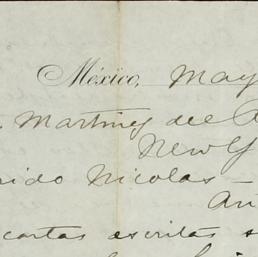 México, May
Martinez del
New Y
ido Nicolas —
An
cartas escritas s